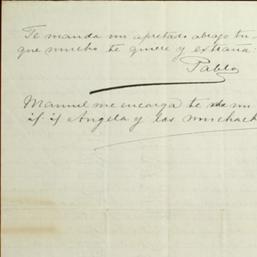 Te manda un apretado abrazo tu
que mucho te quiere y extraña:
Pablo
Manuel me encarga te un
if. if Angela y los muchach